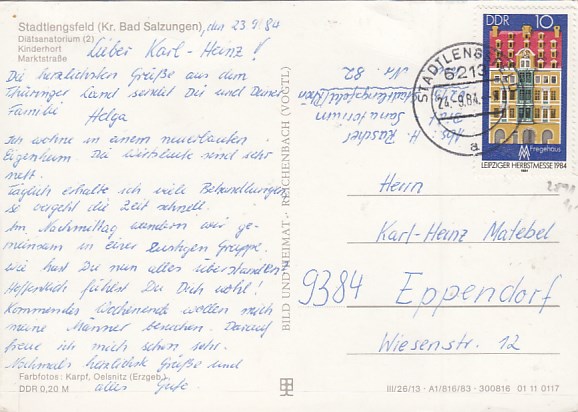 Stadtlengsfeld (Kr. Bad Salzungen), den 23.9.84
Diätsanatorium (2)
Kinderhort
Marktstraße
Lieber Karl-Heinz!
Die herzlichsten Grüße aus dem
Thüringer Land sendet Dir und Deiner
Familie Helga
Ich wohne in einem neuerbauten
Eigenheim. Die Wirtsleute sind sehr
nett.
Täglich erhalte ich viele Behandlungen
so vergeht die Zeit schnell.
Im Nachmittag wandern wir ge-
meinsam in einer lustigen Gruppe.
Wie hast Du nun alles überstanden?
Hoffentlich fühlst Du Dich wohl!
Kommendes Wochenende wollen mich
meine Männer besuchen. Darauf
freue ich mich schon sehr.
Nochmals herzlichste Grüße und
alles Gute
Farbfotos: Karpf, Oelsnitz (Erzgeb.)
DDR 0,20 M
BILD UND HEIMAT · REICHENBACH (VOGTL)
Abs.
H. Rascher
Sanatorium
6213
Stadtlengsfeld/Rhön
Nr. 82
STADTLENGSFELD
6213
24.-9.84.
a
DDR 10
Fregehaus
LEIPZIGER HERBSTMESSE 1984
Herrn
Karl-Heinz Matebel
9384 Eppendorf
Wiesenstr. 12
III/26/13 · A1/816/83 · 300816 01 11 0117